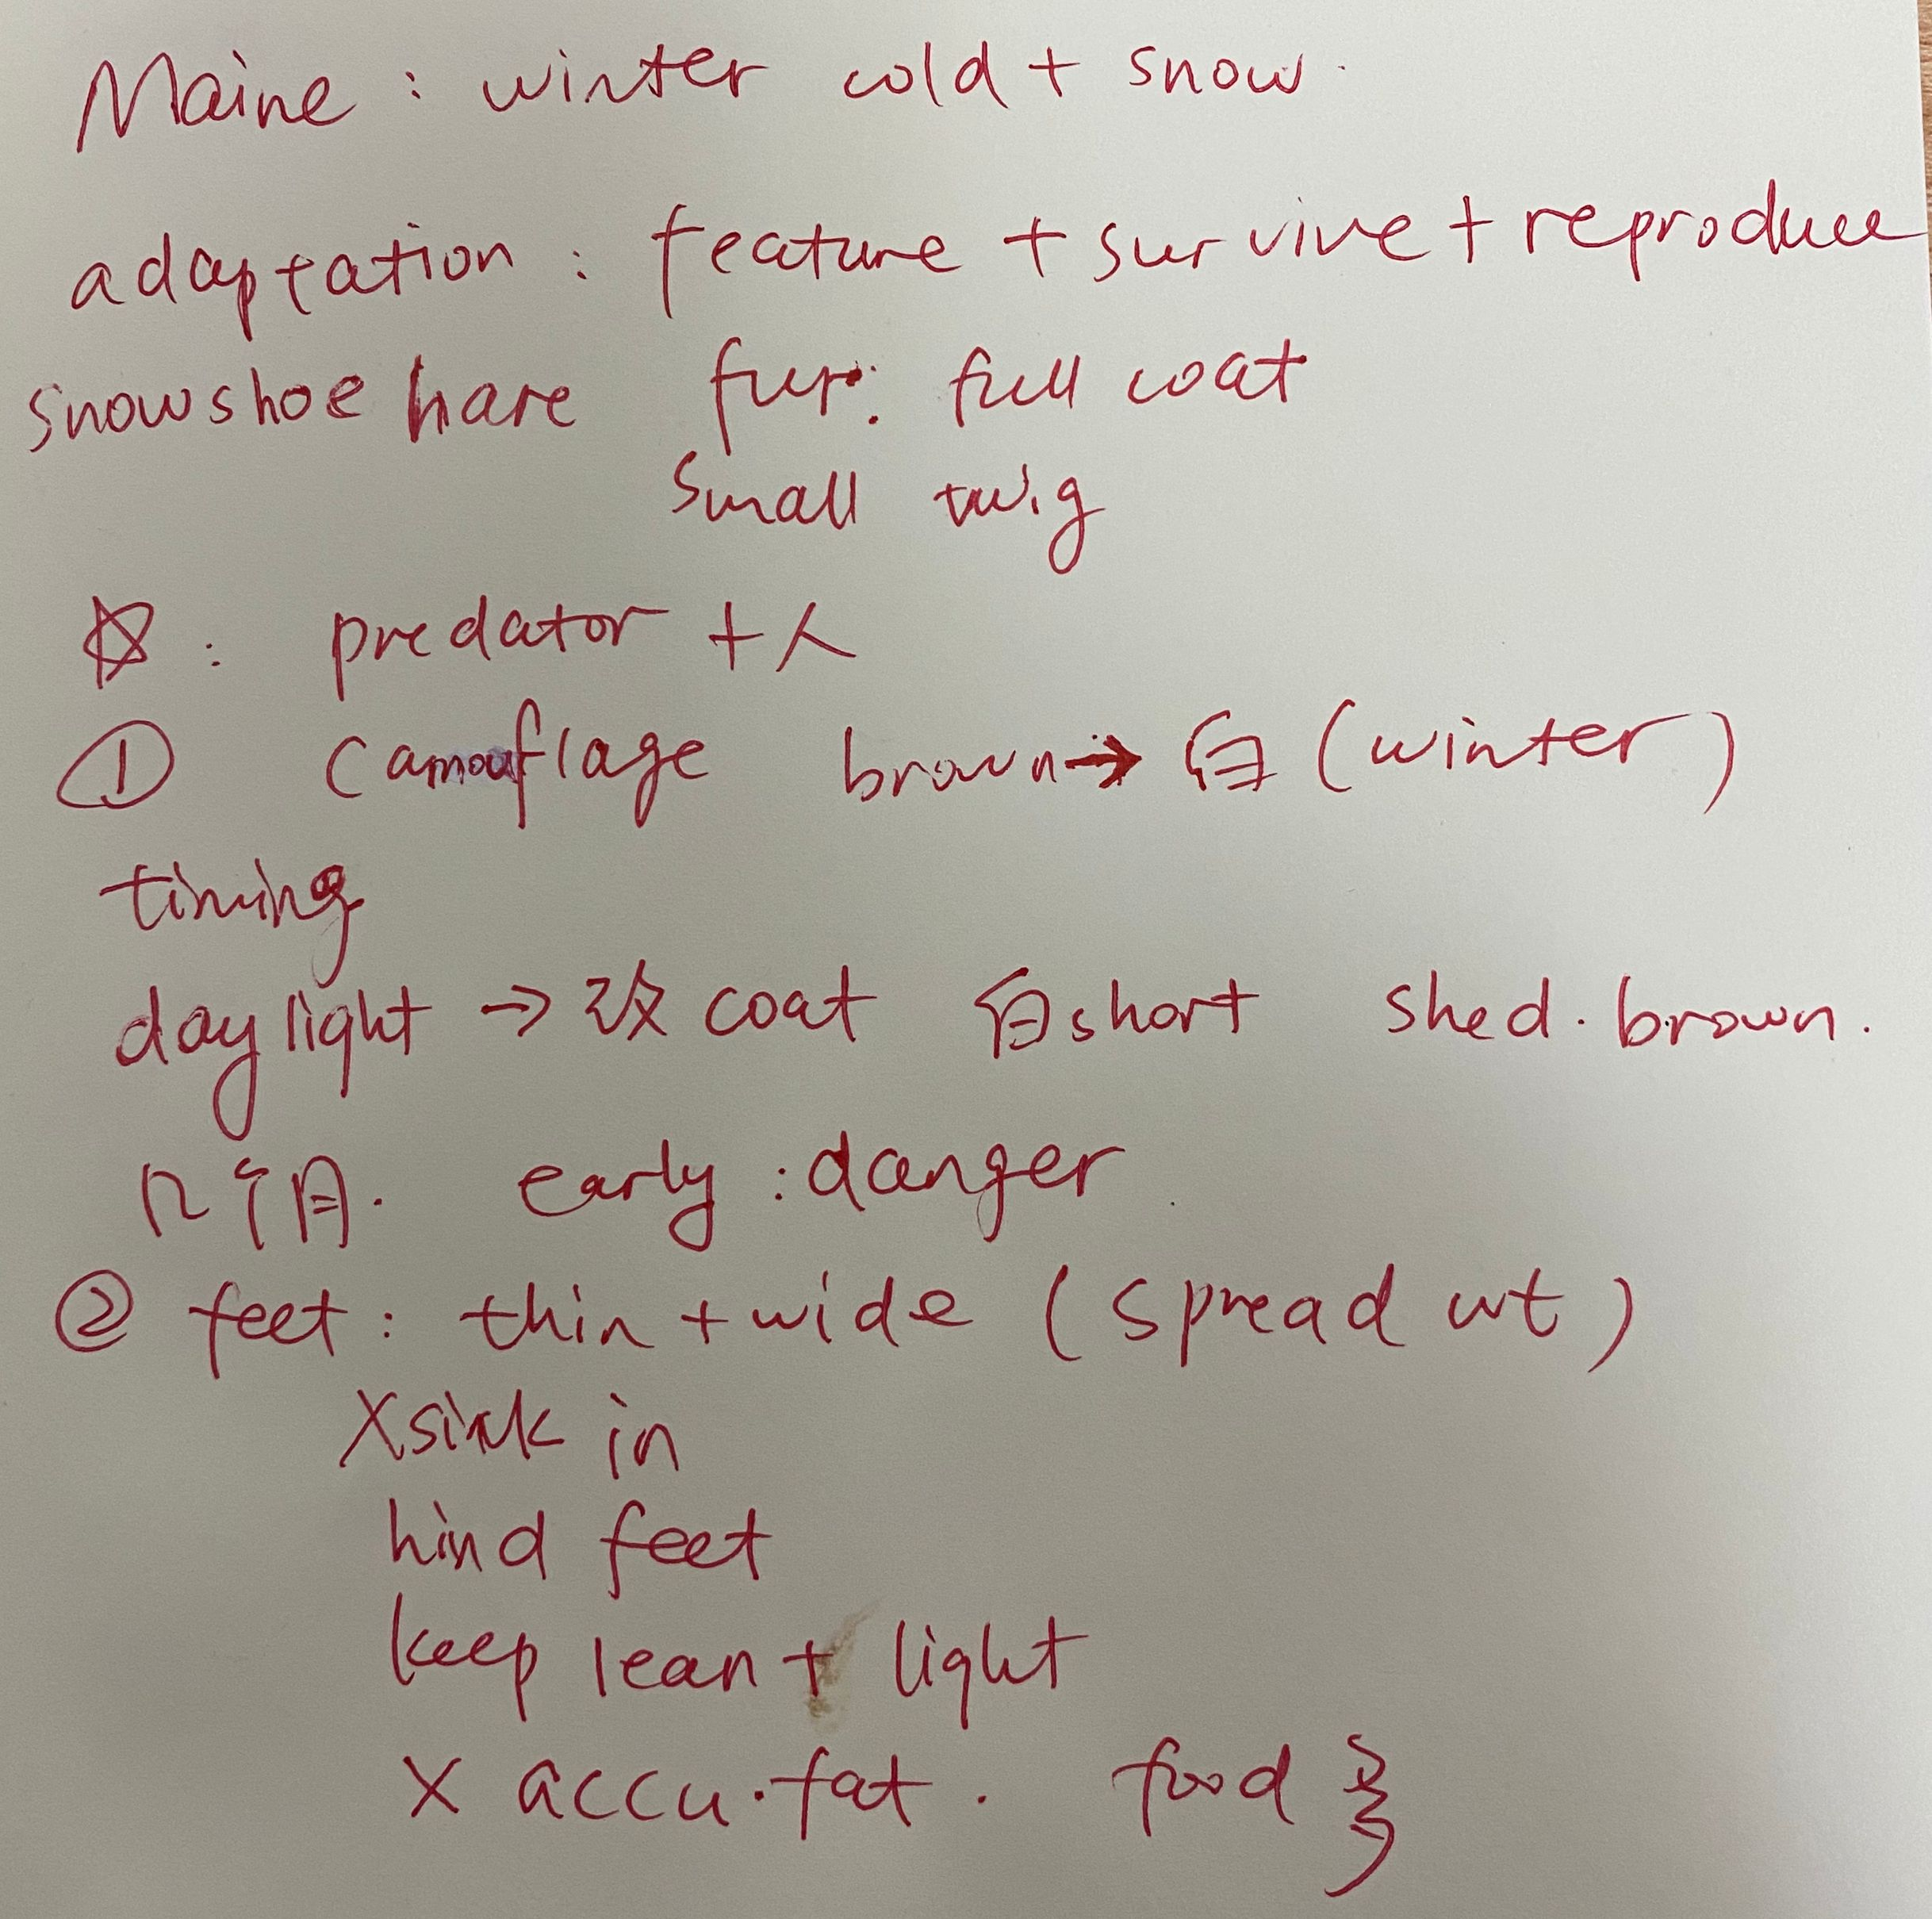 Maine : winter cold + snow.
adaptation : feature + survive + reproduce
snowshoe hare fur: full coat
small twig
☆ : predator + 人
① camouflage brown → 白 (winter)
timing
daylight → 改 coat 白short shed. brown.
几个月. early : danger
② feet : thin + wide (spread wt)
X sink in
hind feet
keep lean + light
X accu. fat. food 多